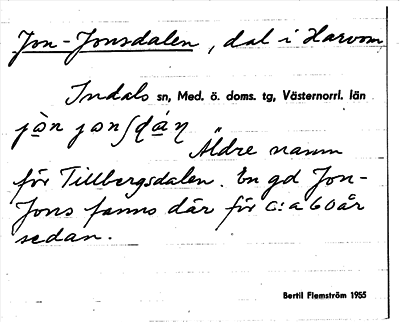 Jon-Jonsdalen, dal i Harvom
Indals sn, Med. ö. doms. tg, Västernorrl. län
Äldre namn
för Tillbergsdalen. En gd Jon-
Jons fanns där för c:a 60 år
sedan.
Bertil Flemström 1955